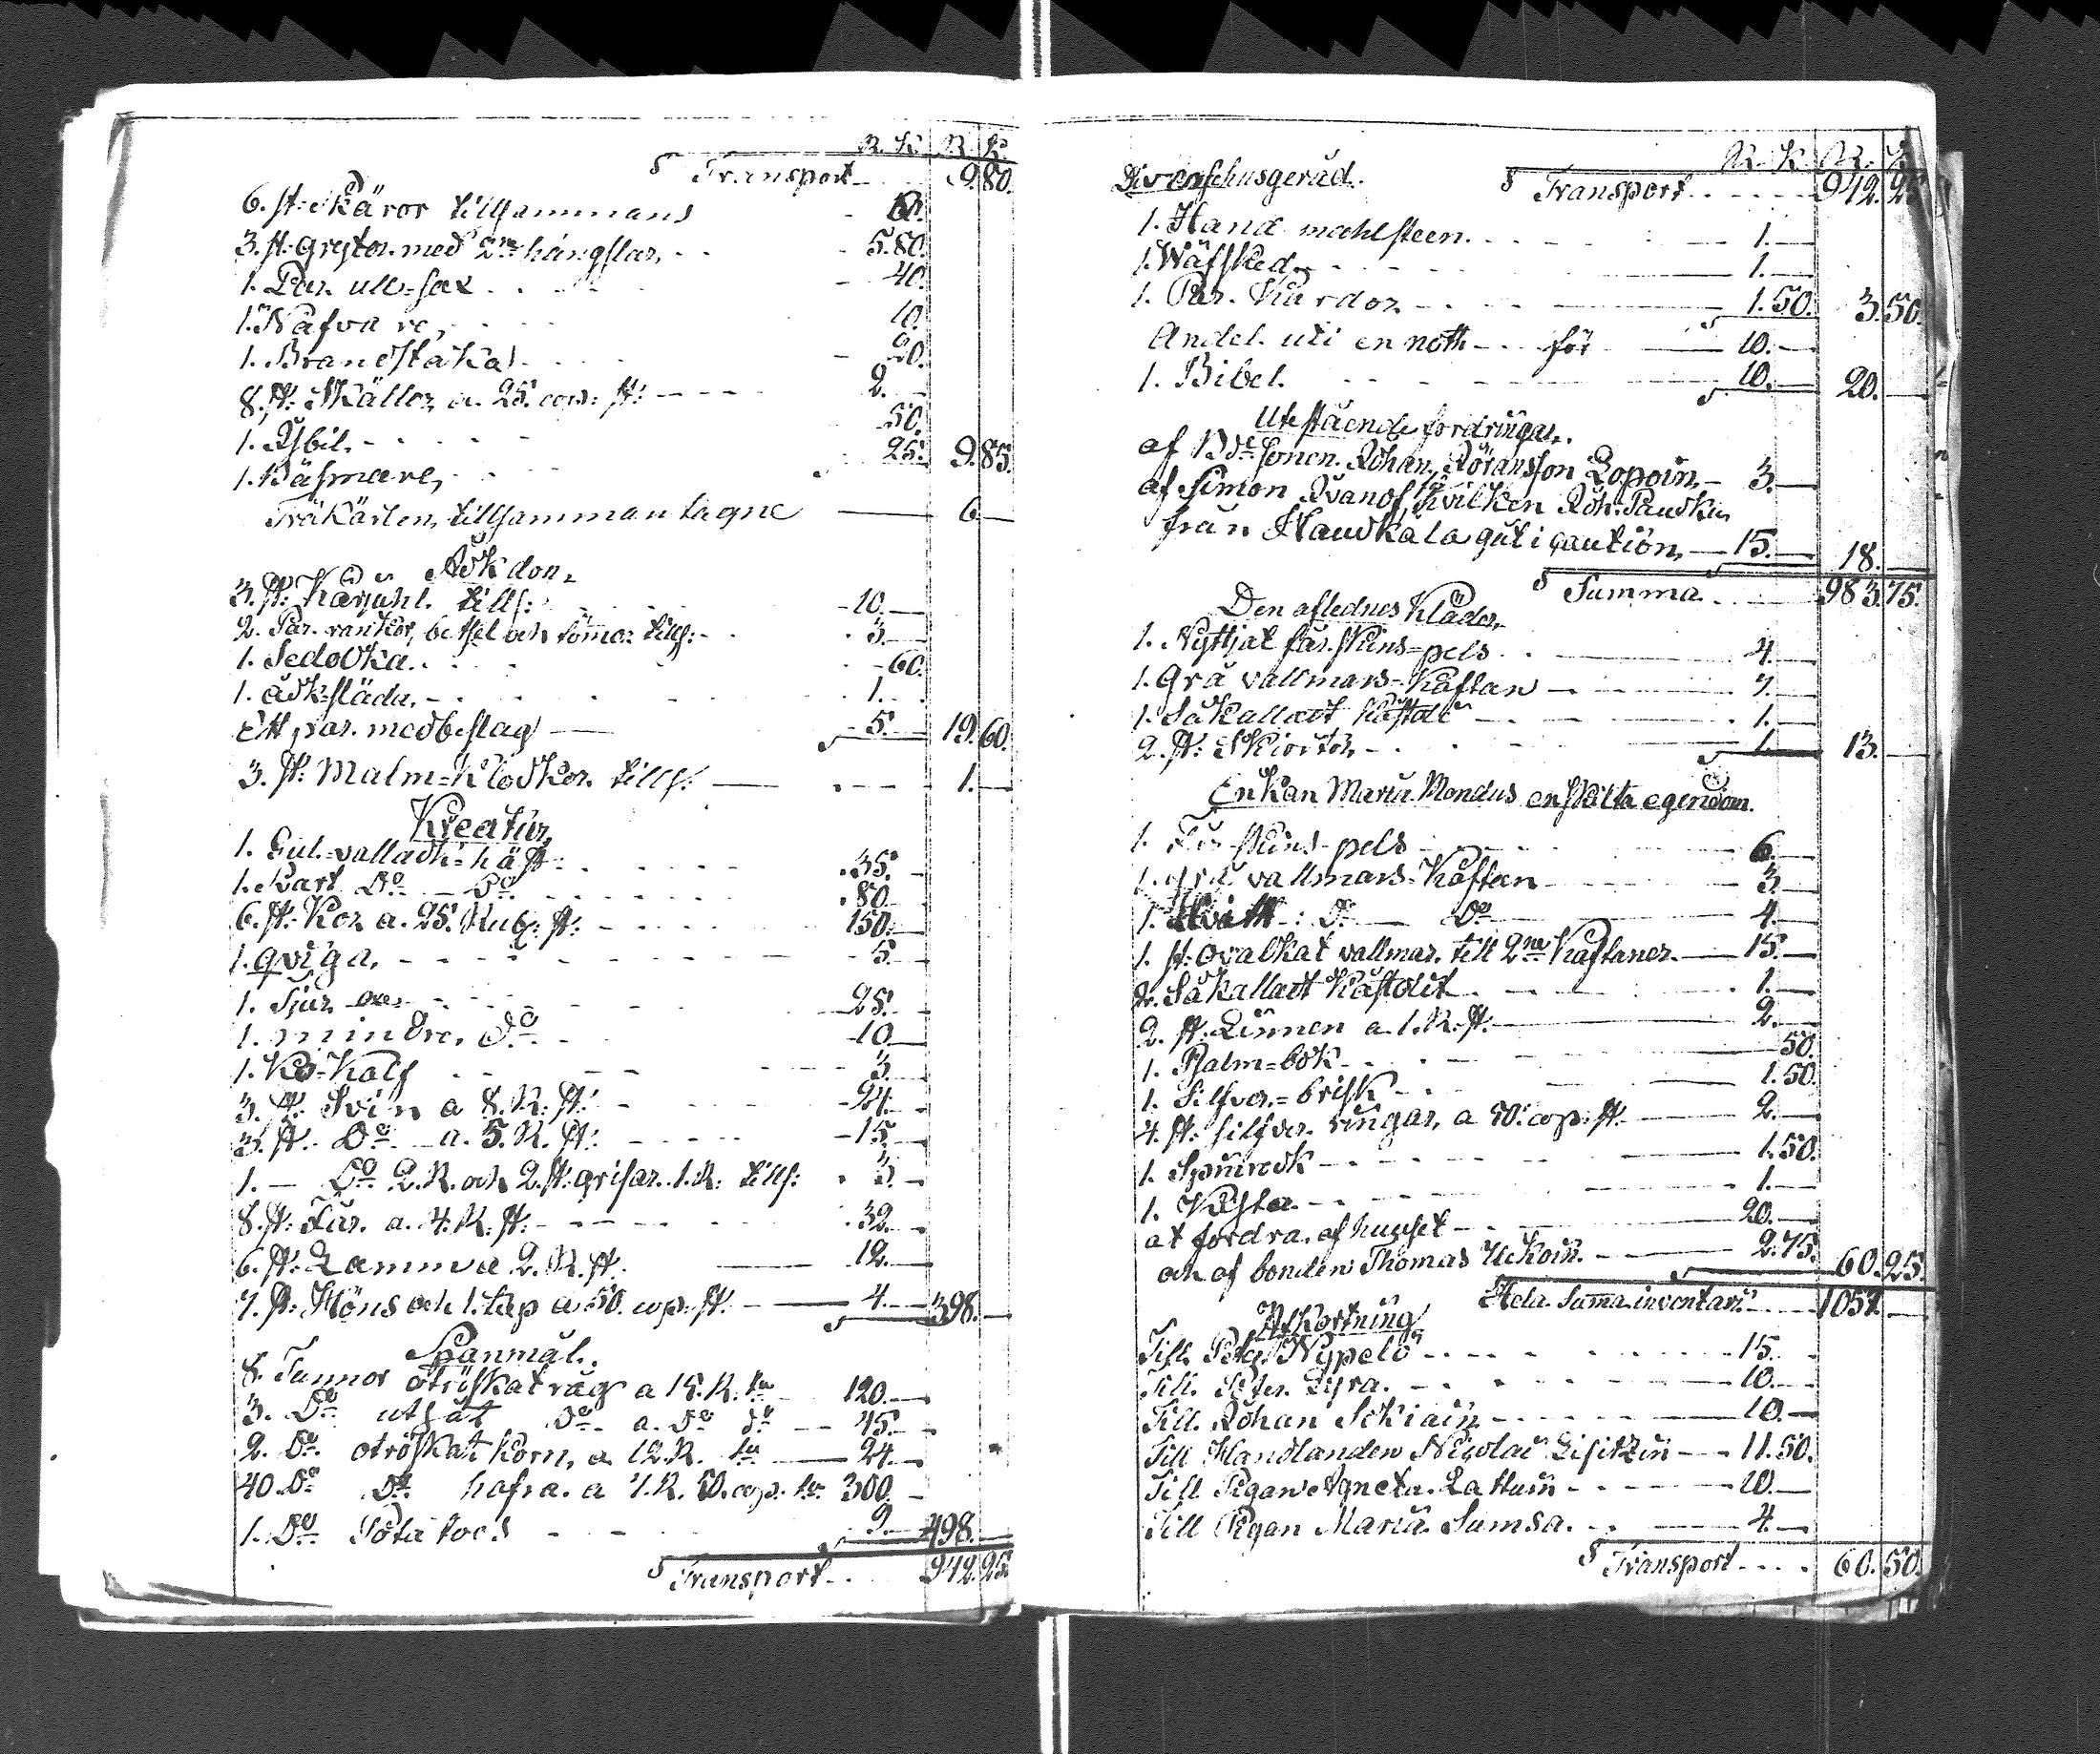 R. K. R. K.
Transport 9.80.
6. st: skäror tillsammans 60.
3. st: grytor med 2ne hängslar, 5.80.
1. Par. ull-sax 40.
1. Nafvare, 10.
1. Brandstaka 20.
8. st: Skällor a. 25. cop: st: 2.
1. Isbil. 50.
1. Bäsmare, 25. 9.85.
Träkärlen, tillsammantagne 6.
Åkdon,
3. st: Kärjuhl. tills: 10.
2. Par. rankor, betsel och tömmar tills: 3.
1. Sedolka. 60.
1. åksläda, 1.
Ett par. medbeslag 5. 19.60.
3. st: Malm-Klockor. tills: 1.
Kreatur,
1. Gul-vallack-häst: 35.
1. svart Do Do 80.
6. st: Kor a. 25. Rub: st: 150.
1. qviga, 5.
1. Tjur 25.
1. mindre, Do 10.
1. Ko-Kalf 3.
3. st: Svin a 8. R: st: 24.
3. st. Do a. 5. R. st: 15.
1. Do 2. R. och 2. st: grisar. 1. R: tills: 3.
8. st: Får. a. 4. R. st: 32.
6. st: Lamm a 2. R. st. 12.
7. st: Höns och 1. tup a 50. cop: st. 4. 398.
Spanmål.
8. Tunnor otröskat råg a 15. R. tn 120.
3. Do utsåt Do a. Do do 45.
2. Do otröskat korn, a 12. R. tn 24.
40. Do Do hafra. a 7. R. 50. cop. tn. 300.
1. Do Potätoes 9. 498.
Transport 942.25.
R. K. R. K.
Qvensehusgeråd. Transport 942.25
1. Hand mahlsteen. 1.
1. Wäfsked. 1.
1. Par. Kardor 1.50. 3.50.
Andel uti en noth för 10.
1. Bibel. 10. 20.
Utestående fordringar.
af Bde sonen Johan Göransson Lopoin 3.
af Simon Ivanof, hvilken Joh. Paukku
från Haukkala gåt i caution, 15. 18.
Summa 983.75.
Den aflednes Kläder,
1. Nyttjat fårskins-pels 4.
1. Grå vallmars-Kaftan 7.
1. Såkalladt Kåstoli 1.
2. st: Skiortor 1. 13.
Enkan Maria Mondus enskilta egendom.
1. Får skins-pels 6.
1. grå vallmars-Kaftan 3.
1. Hvitt: Do Do 4.
1. st: ovalkat vallmar. till 2ne Kaftaner. 15.
2. Såkalladt Kåstolit 1.
2. st. Linnen a. 1. R. st: 2.
1. Psalm-bok 50.
1. Silfver-brisk 1.50.
4. st: silfver ringar, a 50. cop: st. 2.
1. Spinrock 1.50.
1. Kista 1.
at fordra. af huuset 20.
och af bonden Thomas Ukoin. 2.75. 60.25.
Hela Summa inventarii 1057.
Afkortning
Till Pig. Nypelö 15.
Till. Peter. Lyra. 10.
Till. Johan Sokiain 10.
Till Handlanden Nicolai Lisitzin 11.50.
Till Pigan Agneta. Lattuin 10.
Till Pigan Maria Sumsa. 4.
Transport 60.50.